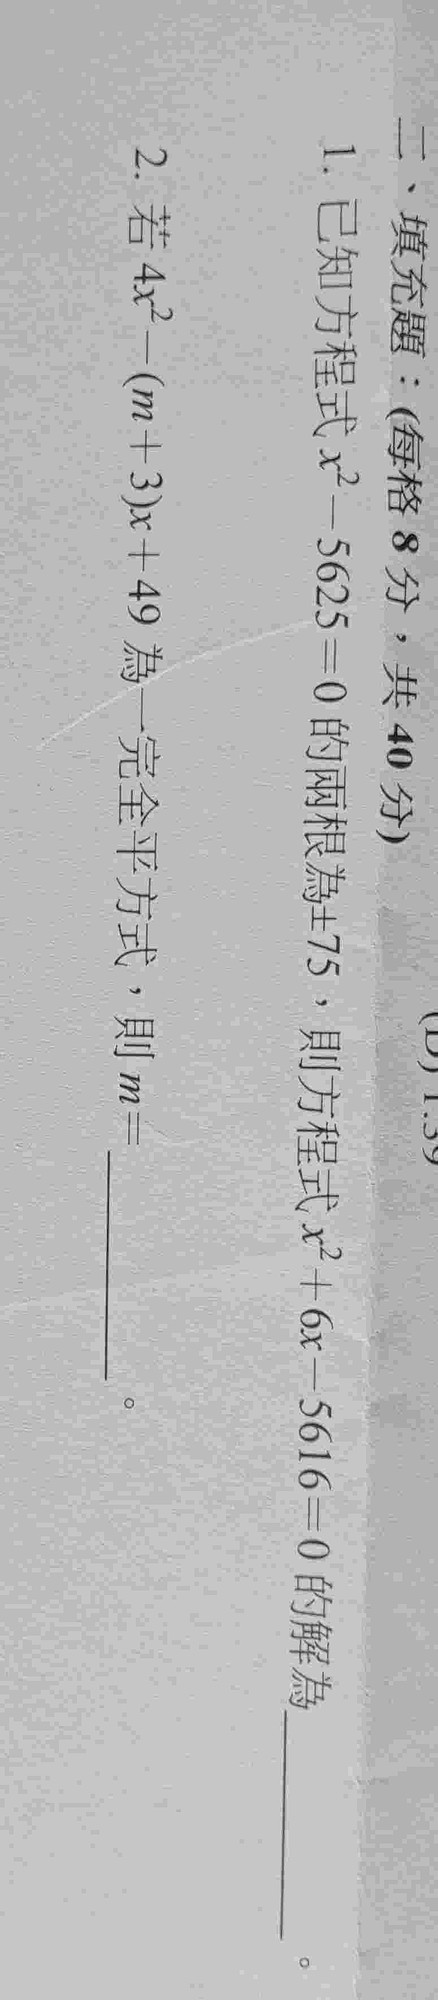 (D) 1.59
二、填充題：(每格 8 分，共 40 分)
1. 已知方程式 x²－5625＝0 的兩根為±75，則方程式 x²＋6x－5616＝0 的解為＿＿＿＿＿。
2. 若 4x²－(m＋3)x＋49 為一完全平方式，則 m＝＿＿＿＿＿。